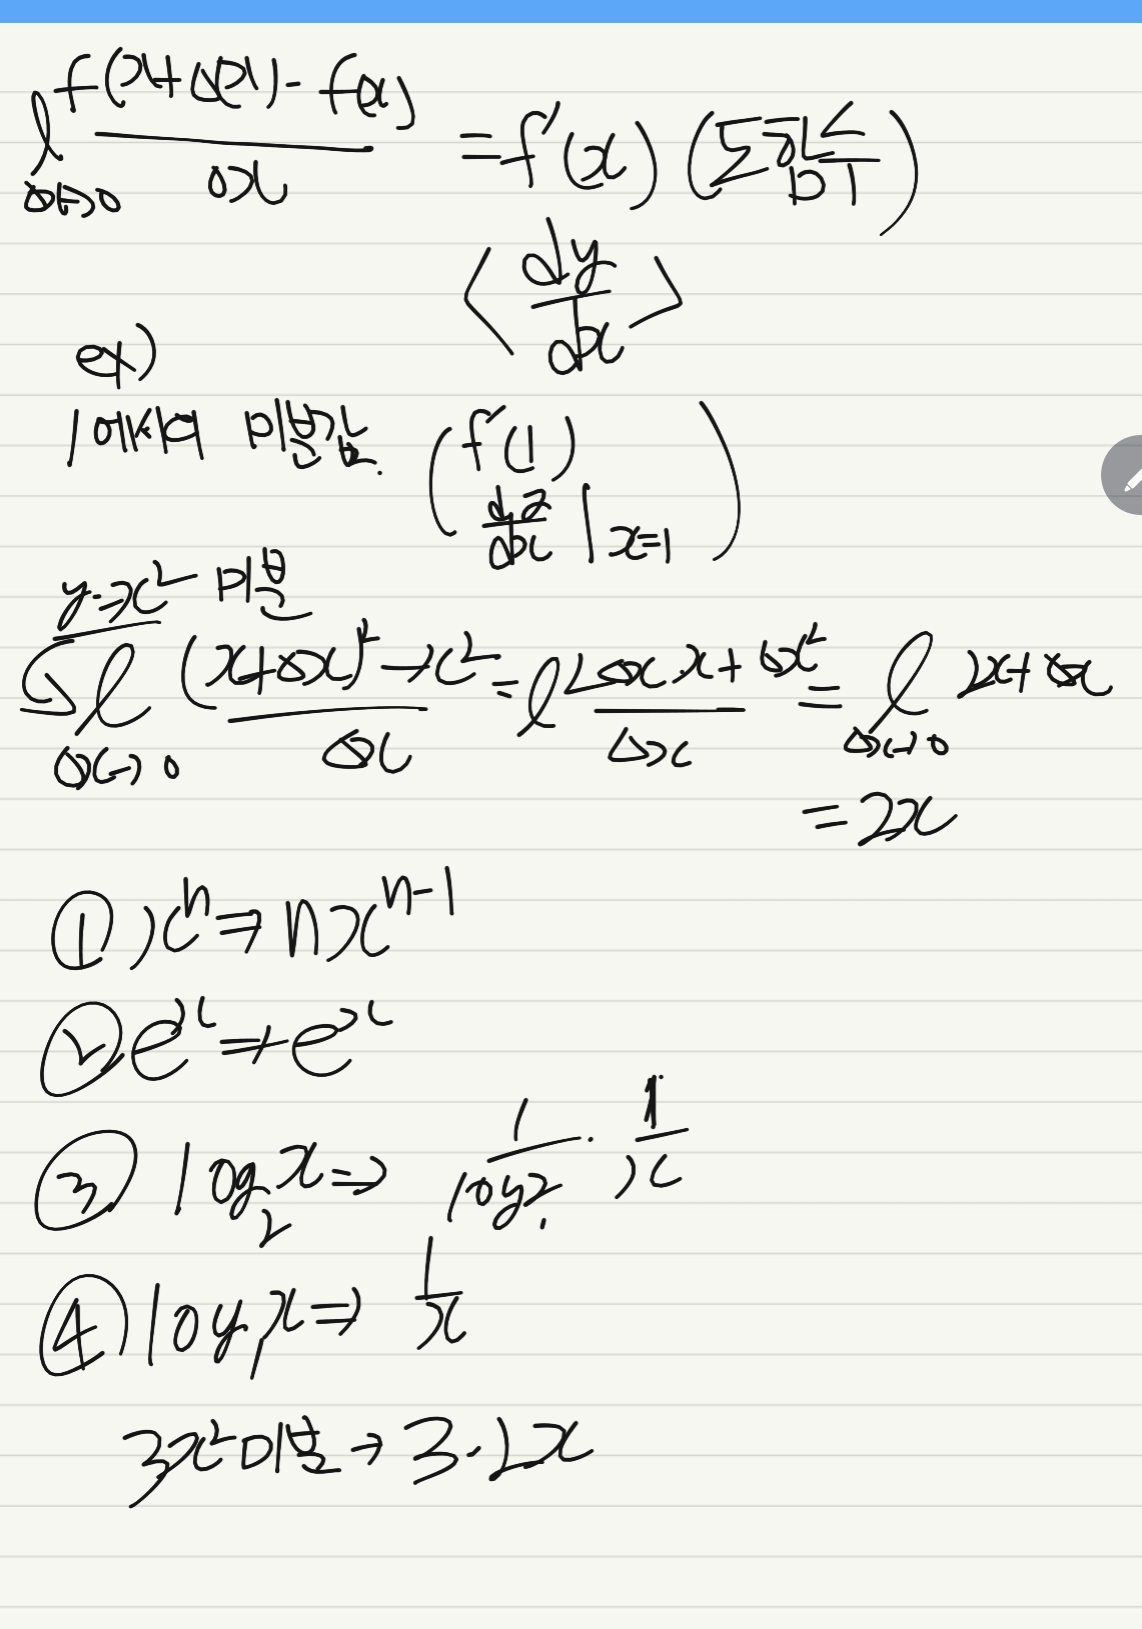 l Δx→0 f(x+Δx)-f(x) / Δx = f'(x) (도함수)
< dy/dx >
ex)
1에서의 미분값. (f'(1)
dy/dx | x=1)
y=x² 미분
l Δx→0 (x+Δx)²-x² / Δx = l 2Δx·x+Δx² / Δx = l Δx→0 2x+Δx
= 2x
① xⁿ ⇒ nxⁿ⁻¹
② eˣ ⇒ eˣ
③ log₂x ⇒ 1/log2 · 1/x
④ log x ⇒ 1/x
3x² 미분 → 3·2x